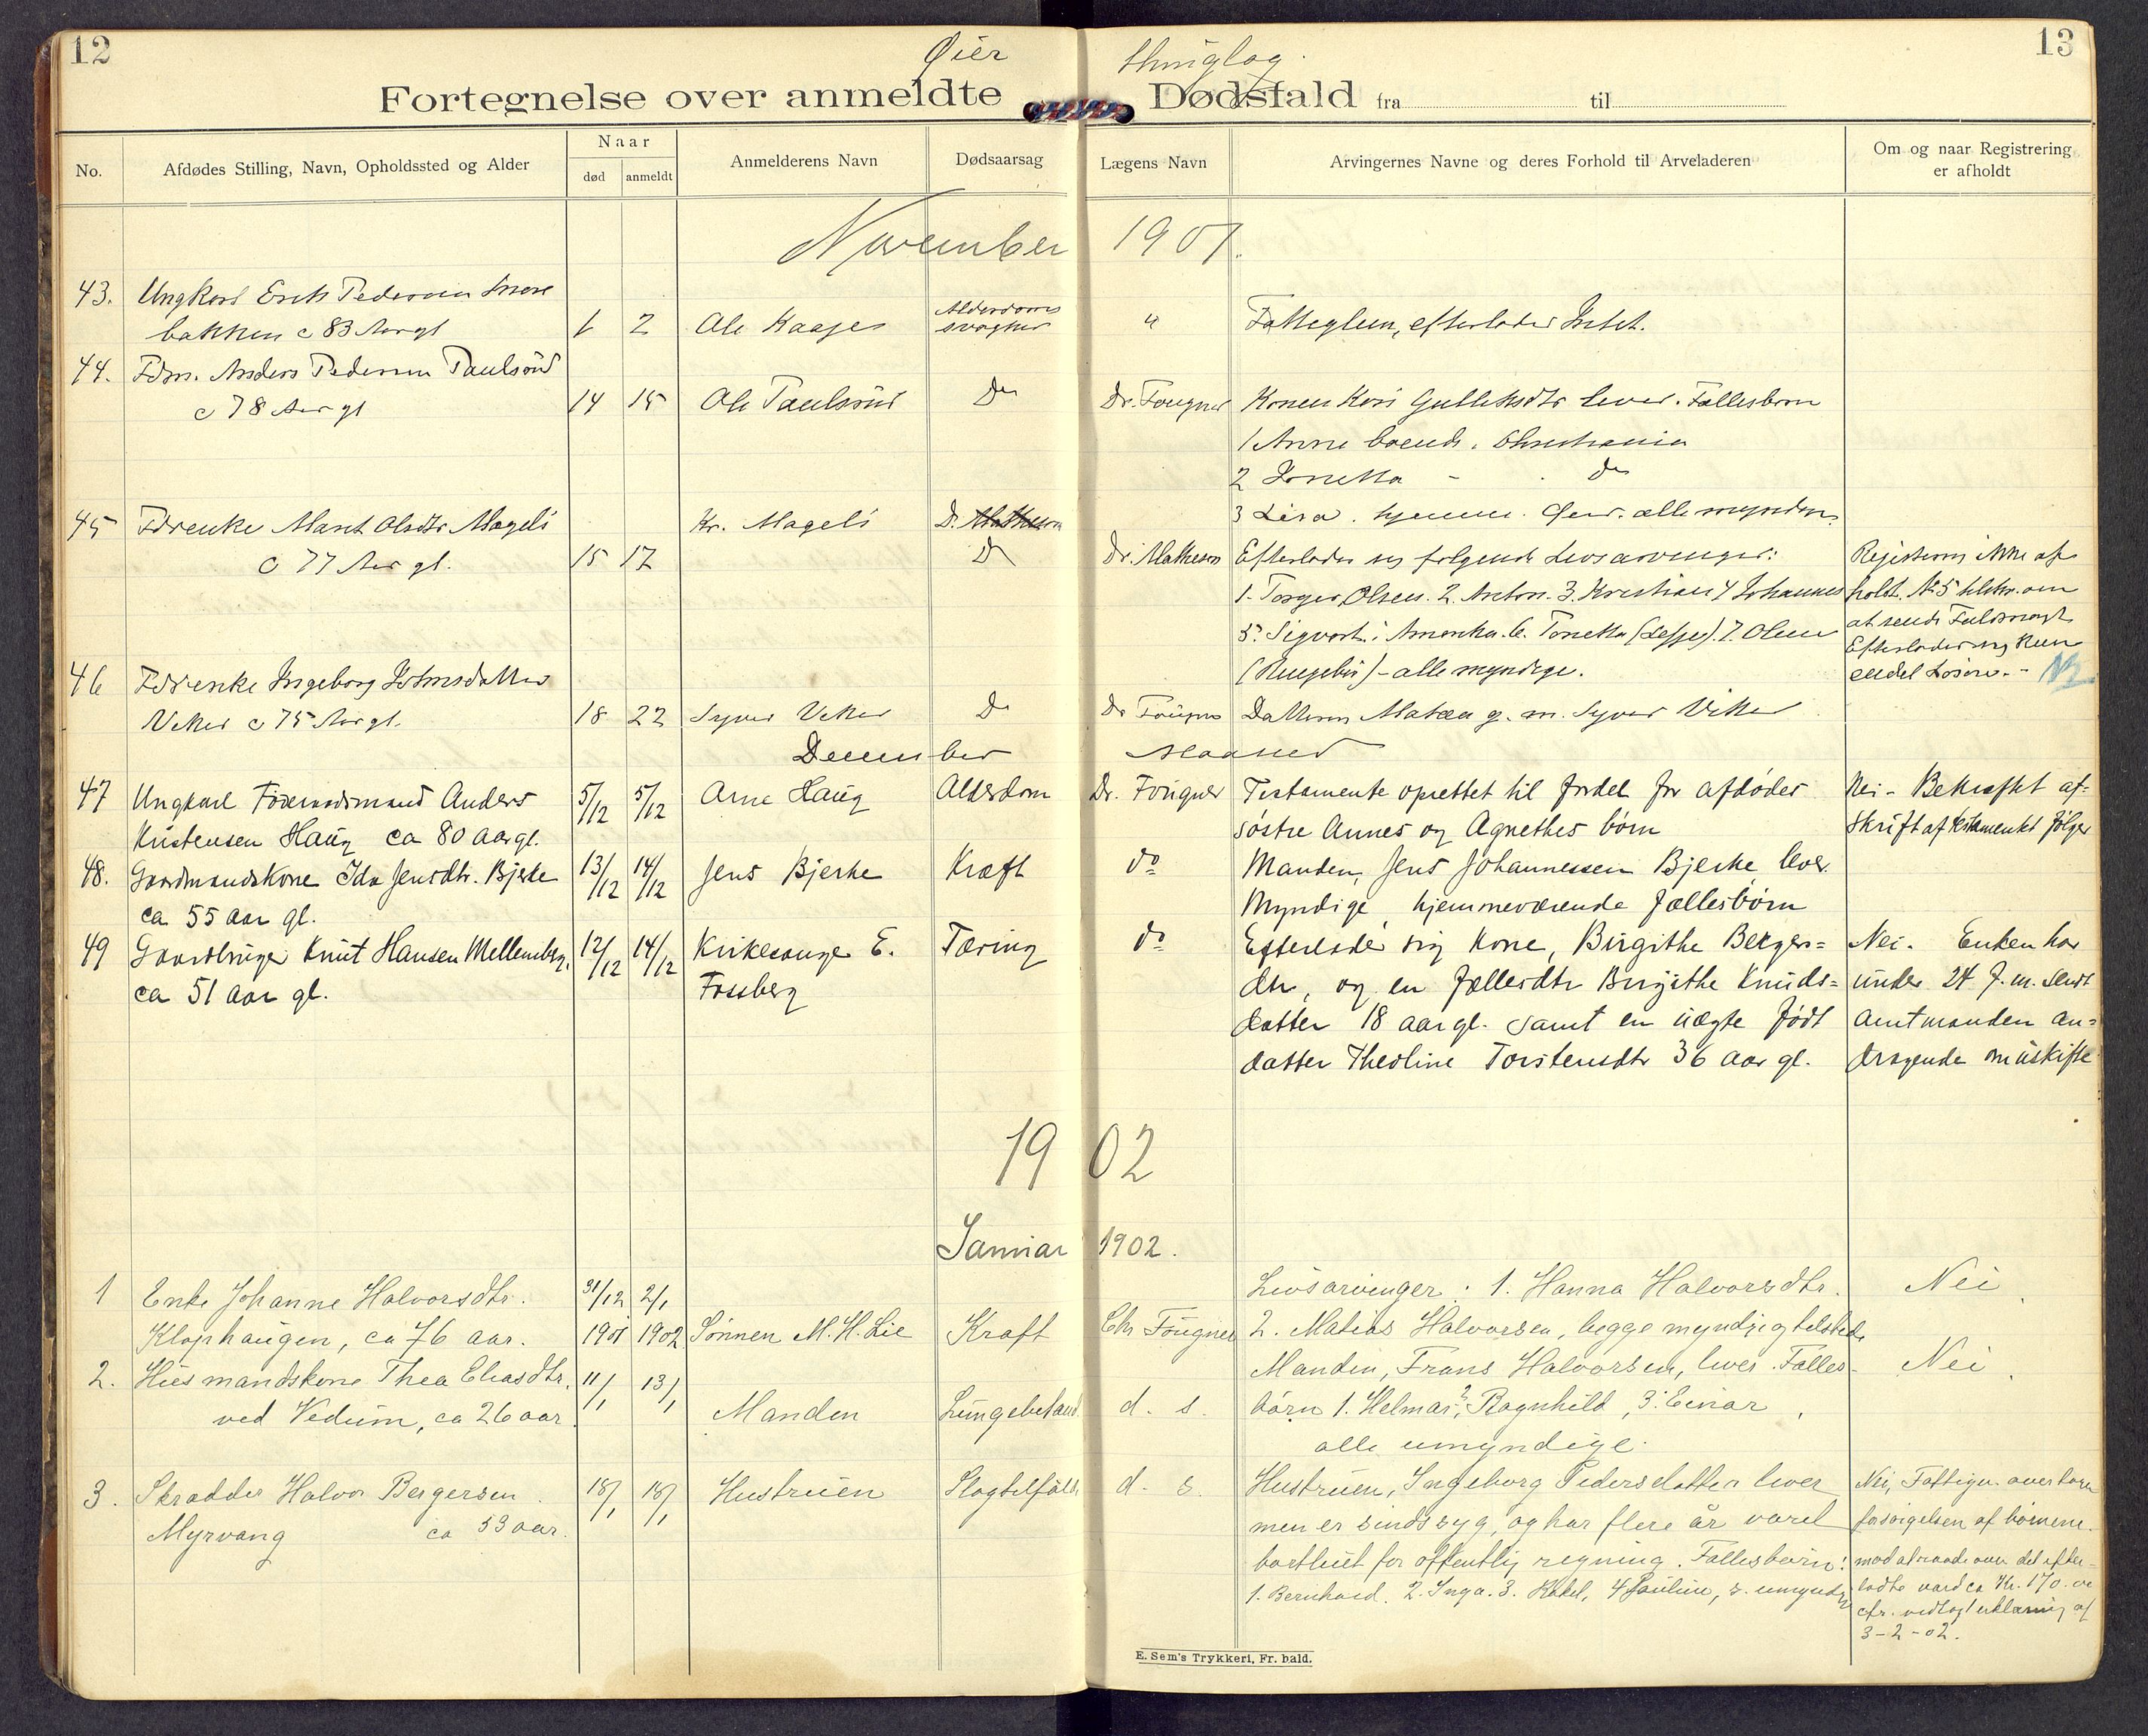 12
Øier
Fortegnelse over anmeldte
No.
Afdødes Stilling, Navn, Opholdssted og Alder
Naar
død
anmeldt
Anmelderens Navn
Dødsaarsag
November
43. Ungkarl Erik Pedersen
bakken c 83 Aar gl 1 2 Ole Kaages Alderdoms
44. Fdm. Anders Pedersen Paulsrud
c 78 Aar gl 14 15 Ole Paulsrud Do
45 Fdrenke Marit Olsdtr Mageli Kr. Mageli
c 77 Aar gl. 15 17 Do
46 Fdrenke Ingeborg Johnsdatter
Viker c 75 Aar gl. 18 22 Syver Viker Do
December
47 Ungkarl Föderaadsmand Anders 5/12 5/12 Arne Haug Alderdom
Kristensen Haug ca 80 aar gl.
48. Gaardmandskone Ida Jensdtr. Bjerke 13/12 14/12 Jens Bjerke Kræft
ca 55 aar gl.
49 Gaardbruger Knut Hansen Mellemberg. 12/12 14/12 Kirkesanger E. Tæring
ca 51 aar gl. Fossberg
19
Januar
1 Enke Johanne Halvorsdtr. 31/12 2/1
Klophaugen, ca 76 aar. 1901 1902 Sönnen M. H. Lie Kraft
2. Husmandskone Thea Eliasdtr. 11/1 13/1
ved Vedum, ca 26 aar. Manden Lungebetænd.
3. Skrædder Halvor Bergersen 18/1 18/1 Hustruen
Myrvang ca 53 aar.
thinglag.
13
Dødsfald fra til
Lægens Navn
Arvingernes Navne og deres Forhold til Arveladeren
Om og naar Registrering
er afholdt
1901.
" Fattiglem, efterlader Intet.
Dr. Fougner Konen Kari Gulliksdtr lever. Fællesbørn
1 Anne boende i Christiania
2 Jonetta - do
3 Lisa. hjemme. alle myndige.
Dr. Matheson Efterlader sig følgende Livsarvinger: Registrering ikke af
1. Torger Olsen. 2. Anton. 3. Kristian 4 Johannes holdt. No 5 om
5. Sigvart i Amerika. 6. Tonetta 7. Oline at sende Fuldmagt
(Ringebu) - alle myndige. Efterlader sig kun
endel Løsøre. -
Dr Fougner Datteren Matea g. m. Syver Viker
Maaned
Dr. Fougner Testamente oprettet til fordel for afdødes Nei - Bekræftet af-
søstre Annes og Agnethes børn skrift af testamentet følger
do Manden, Jens Johannessen Bjerke, lever.
Myndige, hjemmeværende Fællesbørn
do Efterlader sig Kone, Birgithe Berger= Nei. Enken har
dtr, og en Fællesdtr Birgithe Knuds= under 24 f. m. sendt
datter 18 aar gl. samt en uægte født Amtmanden an=
datter Theoline Torstensdtr 36 aar gl. dragende om uskifte
02
1902.
Livsarvinger: 1. Hanna Halvorsdtr. Nei
Chr Fougner 2. Matias Halvorsen, begge myndige, tilstede
Manden, Frans Halvorsen, lever. Fælles- Nei
d. s. børn 1. Helmar, 2. Ragnhild, 3. Einar
alle umyndige.
d. s. Hustruen, Ingeborg Pedersdatter lever Nei, Fattigv. overtar
men er sindssyg, og har flere år været forsörgelsen af börnene.
bortleiet for offentlig regning. Fællesbørn: mod at raade over det efter-
1. Bernhard. 2. Inga. 3. Rakel, 4 Pauline, s. umyndig ladte værd ca Kr. 170.
cfr. vedlagt erklæring af
3-2-02.
E. Sem's Trykkeri, Fr. hald.